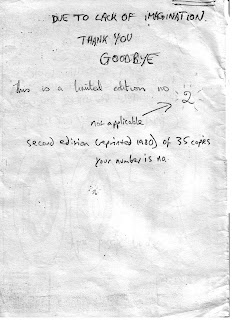 DUE TO LACK OF IMAGINATION.
THANK YOU
GOODBYE
This is a limited edition no 2
not applicable
second edision (reprinted 1980) of 35 copies
your number is no.